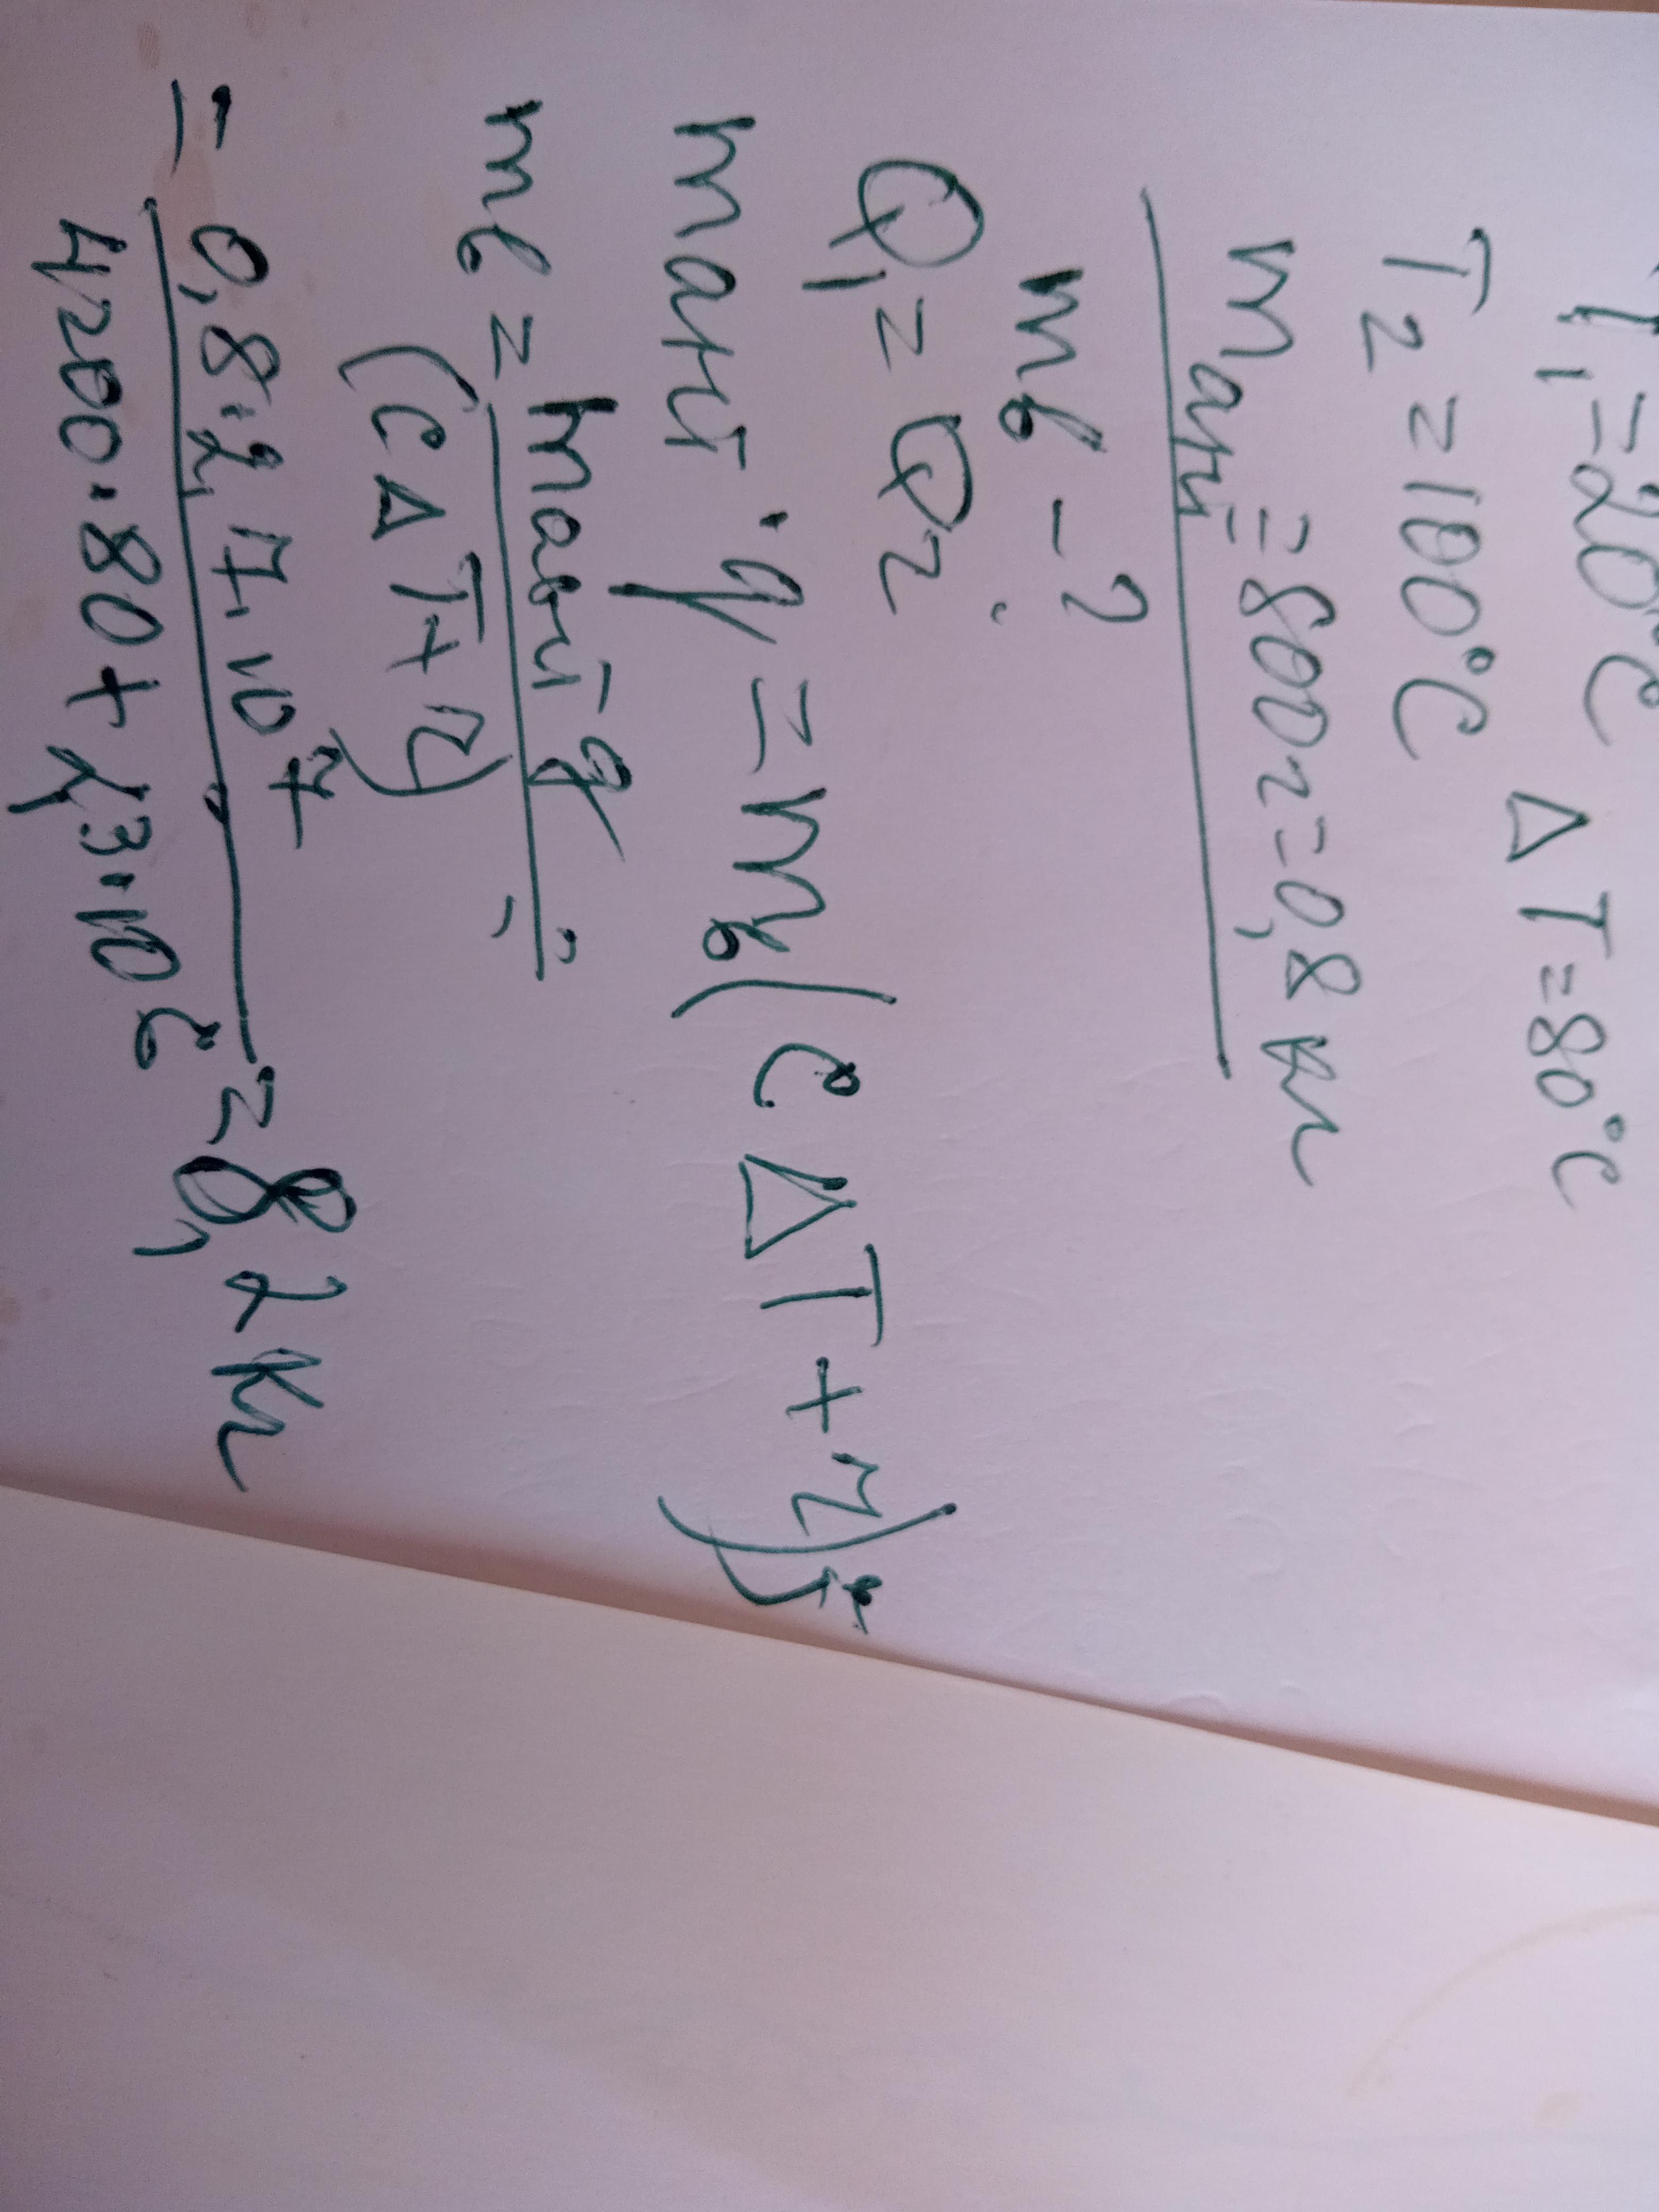 T₁=20°C ΔT=80°C
T₂=100°C
mант=800г=0,8кг
mв-?
Q₁=Q₂
mант·q=mв(cΔT+r);
mв=mант·q
(cΔT+r)
=0,8·2,7·10⁷
4200·80+2,3·10⁶=8,2кг